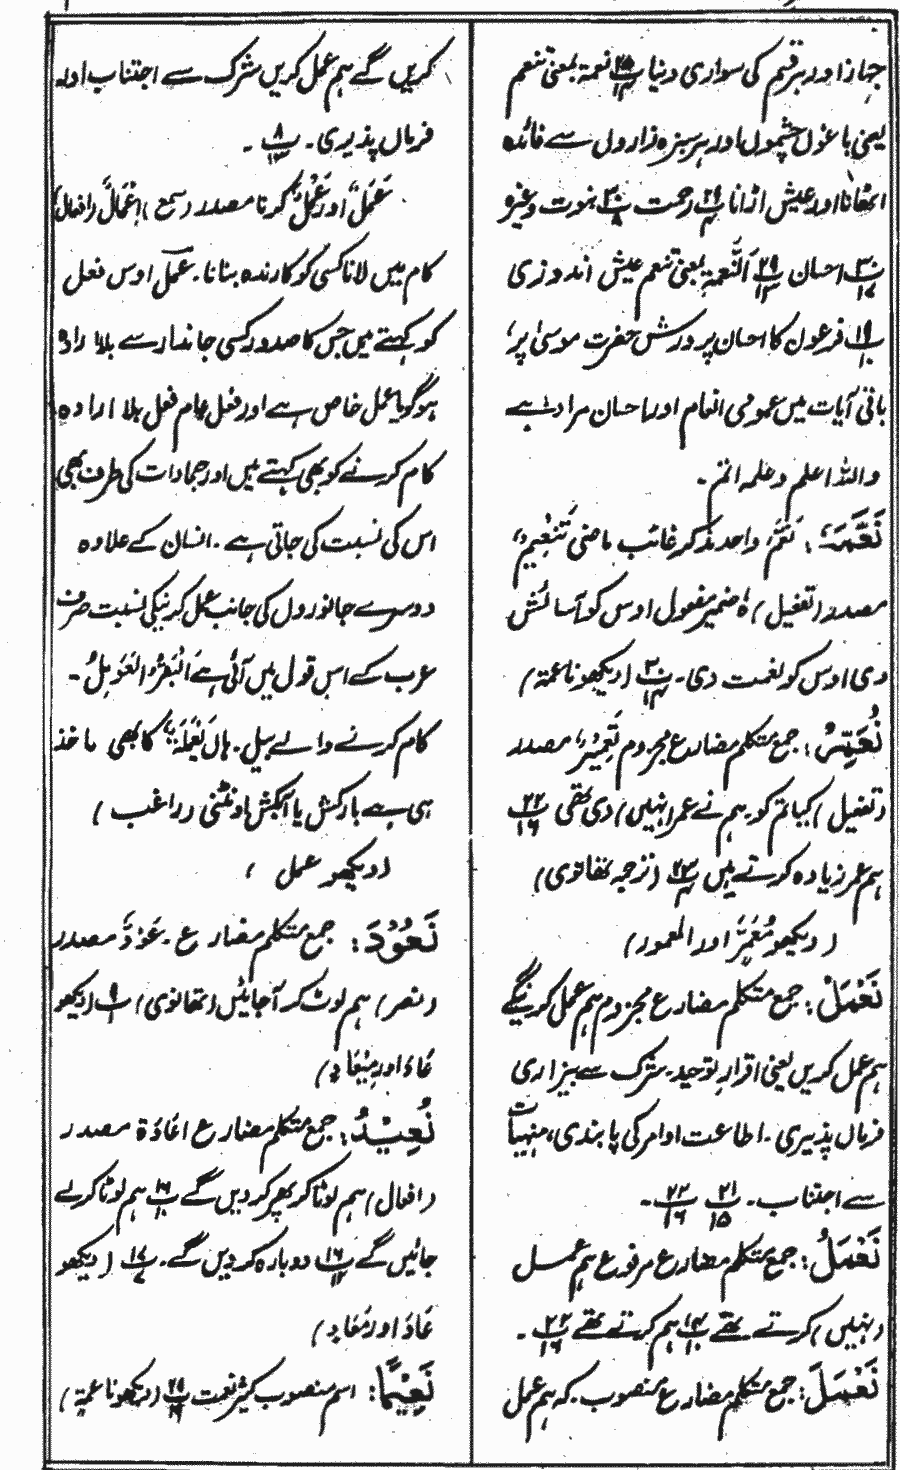 جہاز اور ہر قسم کی سواری دنیا پ۲۵/۱۴ نعمۃ بمعنی تنعم
یعنی باغوں چشموں اور ہر سبزہ زاروں سے فائدہ
اٹھانا اور عیش اڑانا پ۲۹/۴ رحمت پ۳۰/۸ نبوت وغیرہ
پ۳۰/۱۷ احسان پ۲۹/۱۳ اَلنَّعْمَةِ بمعنی تنعم عیش اندوزی
پ۱۹/۱۰ فرعون کا احسان پرورش حضرت موسیٰ پر،
باقی آیات میں عمومی انعام اور احسان مراد ہے
واللہ اعلم وعلمہ اتم۔
نَعَّمَهٗ: نَعَّمَ واحد مذکر غائب ماضی تَنْعِیْمٌ
مصدر (تفعیل) ہٗ ضمیر مفعول اوس کو آسائش
دی اوس کو نعمت دی۔ پ۳۰/۱۴ (دیکھو ناعمة)
نُعَمِّرْ: جمع متکلم مضارع مجزوم تَعْمِیْرٌ مصدر
(تفعیل) کیا تم کو ہم نے عمر (نہیں) دی تھی پ۲۲/۱۶
ہم عمر زیادہ کرتے ہیں پ۲۳/۴ (ترجمہ تھانوی)
(دیکھو مُعَمَّرٌ اور المعمور)
نَعْمَلْ: جمع متکلم مضارع مجزوم ہم عمل کرینگے
ہم عمل کریں یعنی اقرار توحید۔ شرک سے بیزاری
فرماں پذیری۔ اطاعت اوامر کی پابندی، منہیات
سے اجتناب۔ پ۲۱/۱۵ پ۲۲/۱۶۔
نَعْمَلُ: جمع متکلم مضارع مرفوع ہم عمل
(نہیں) کرتے تھے پ۱۴/۱۰ ہم کرتے تھے پ۲۲/۱۶۔
نَعْمَلَ: جمع متکلم مضارع منصوب۔ کہ ہم عمل
کریں گے ہم عمل کریں شرک سے اجتناب اور
فرماں پذیری۔ پ۸/۱۳۔
عَمَلٌ، اور عَمِلَ، کرنا مصدر (سمع) اِعْمَالٌ (افعال)
کام میں لانا کسی کو کارندہ بنانا۔ عمل اوس فعل
کو کہتے ہیں جس کا صدور کسی جاندار سے بالارادہ
ہو گویا عمل خاص ہے اور فعل عام فعل بلا ارادہ
کام کرنے کو بھی کہتے ہیں اور جمادات کی طرف بھی
اس کی نسبت کی جاتی ہے۔ انسان کے علاوہ
دوسرے جانوروں کی جانب عمل کرنیکی نسبت صرف
عرب کے اس قول میں آئی ہے اَلْبَقَرُ الْعَوَامِلُ۔
کام کرنے والے بیل۔ ہاں یَعْمَلَةٌ کا بھی ماخذ
ہی ہے بارکش یا آبکش اونٹنی (راغب)
(دیکھو عمل)
نَعُوْدَ: جمع متکلم مضارع۔ عَوْدٌ مصدر
(نصر) ہم لوٹ کر آجائیں (تھانوی) پ۹/۱ (دیکھو
عَادَ اور مَعَادٍ)
نُعِیْدُ: جمع متکلم مضارع اِعَادَة مصدر
(افعال) ہم لوٹا کر پھیر کر دیں گے پ۱۶/۱۰ ہم لوٹا کرلے
جائیں گے پ۱۶/۱۲ دوبارہ کر دیں گے۔ پ۱۷/۷ (دیکھو
عَادَ اور مَعَادٍ)
نَعِیْمًا: اسم منصوب کثیر نعمت پ۲۹/۱۹ (دیکھو ناعمۃ)